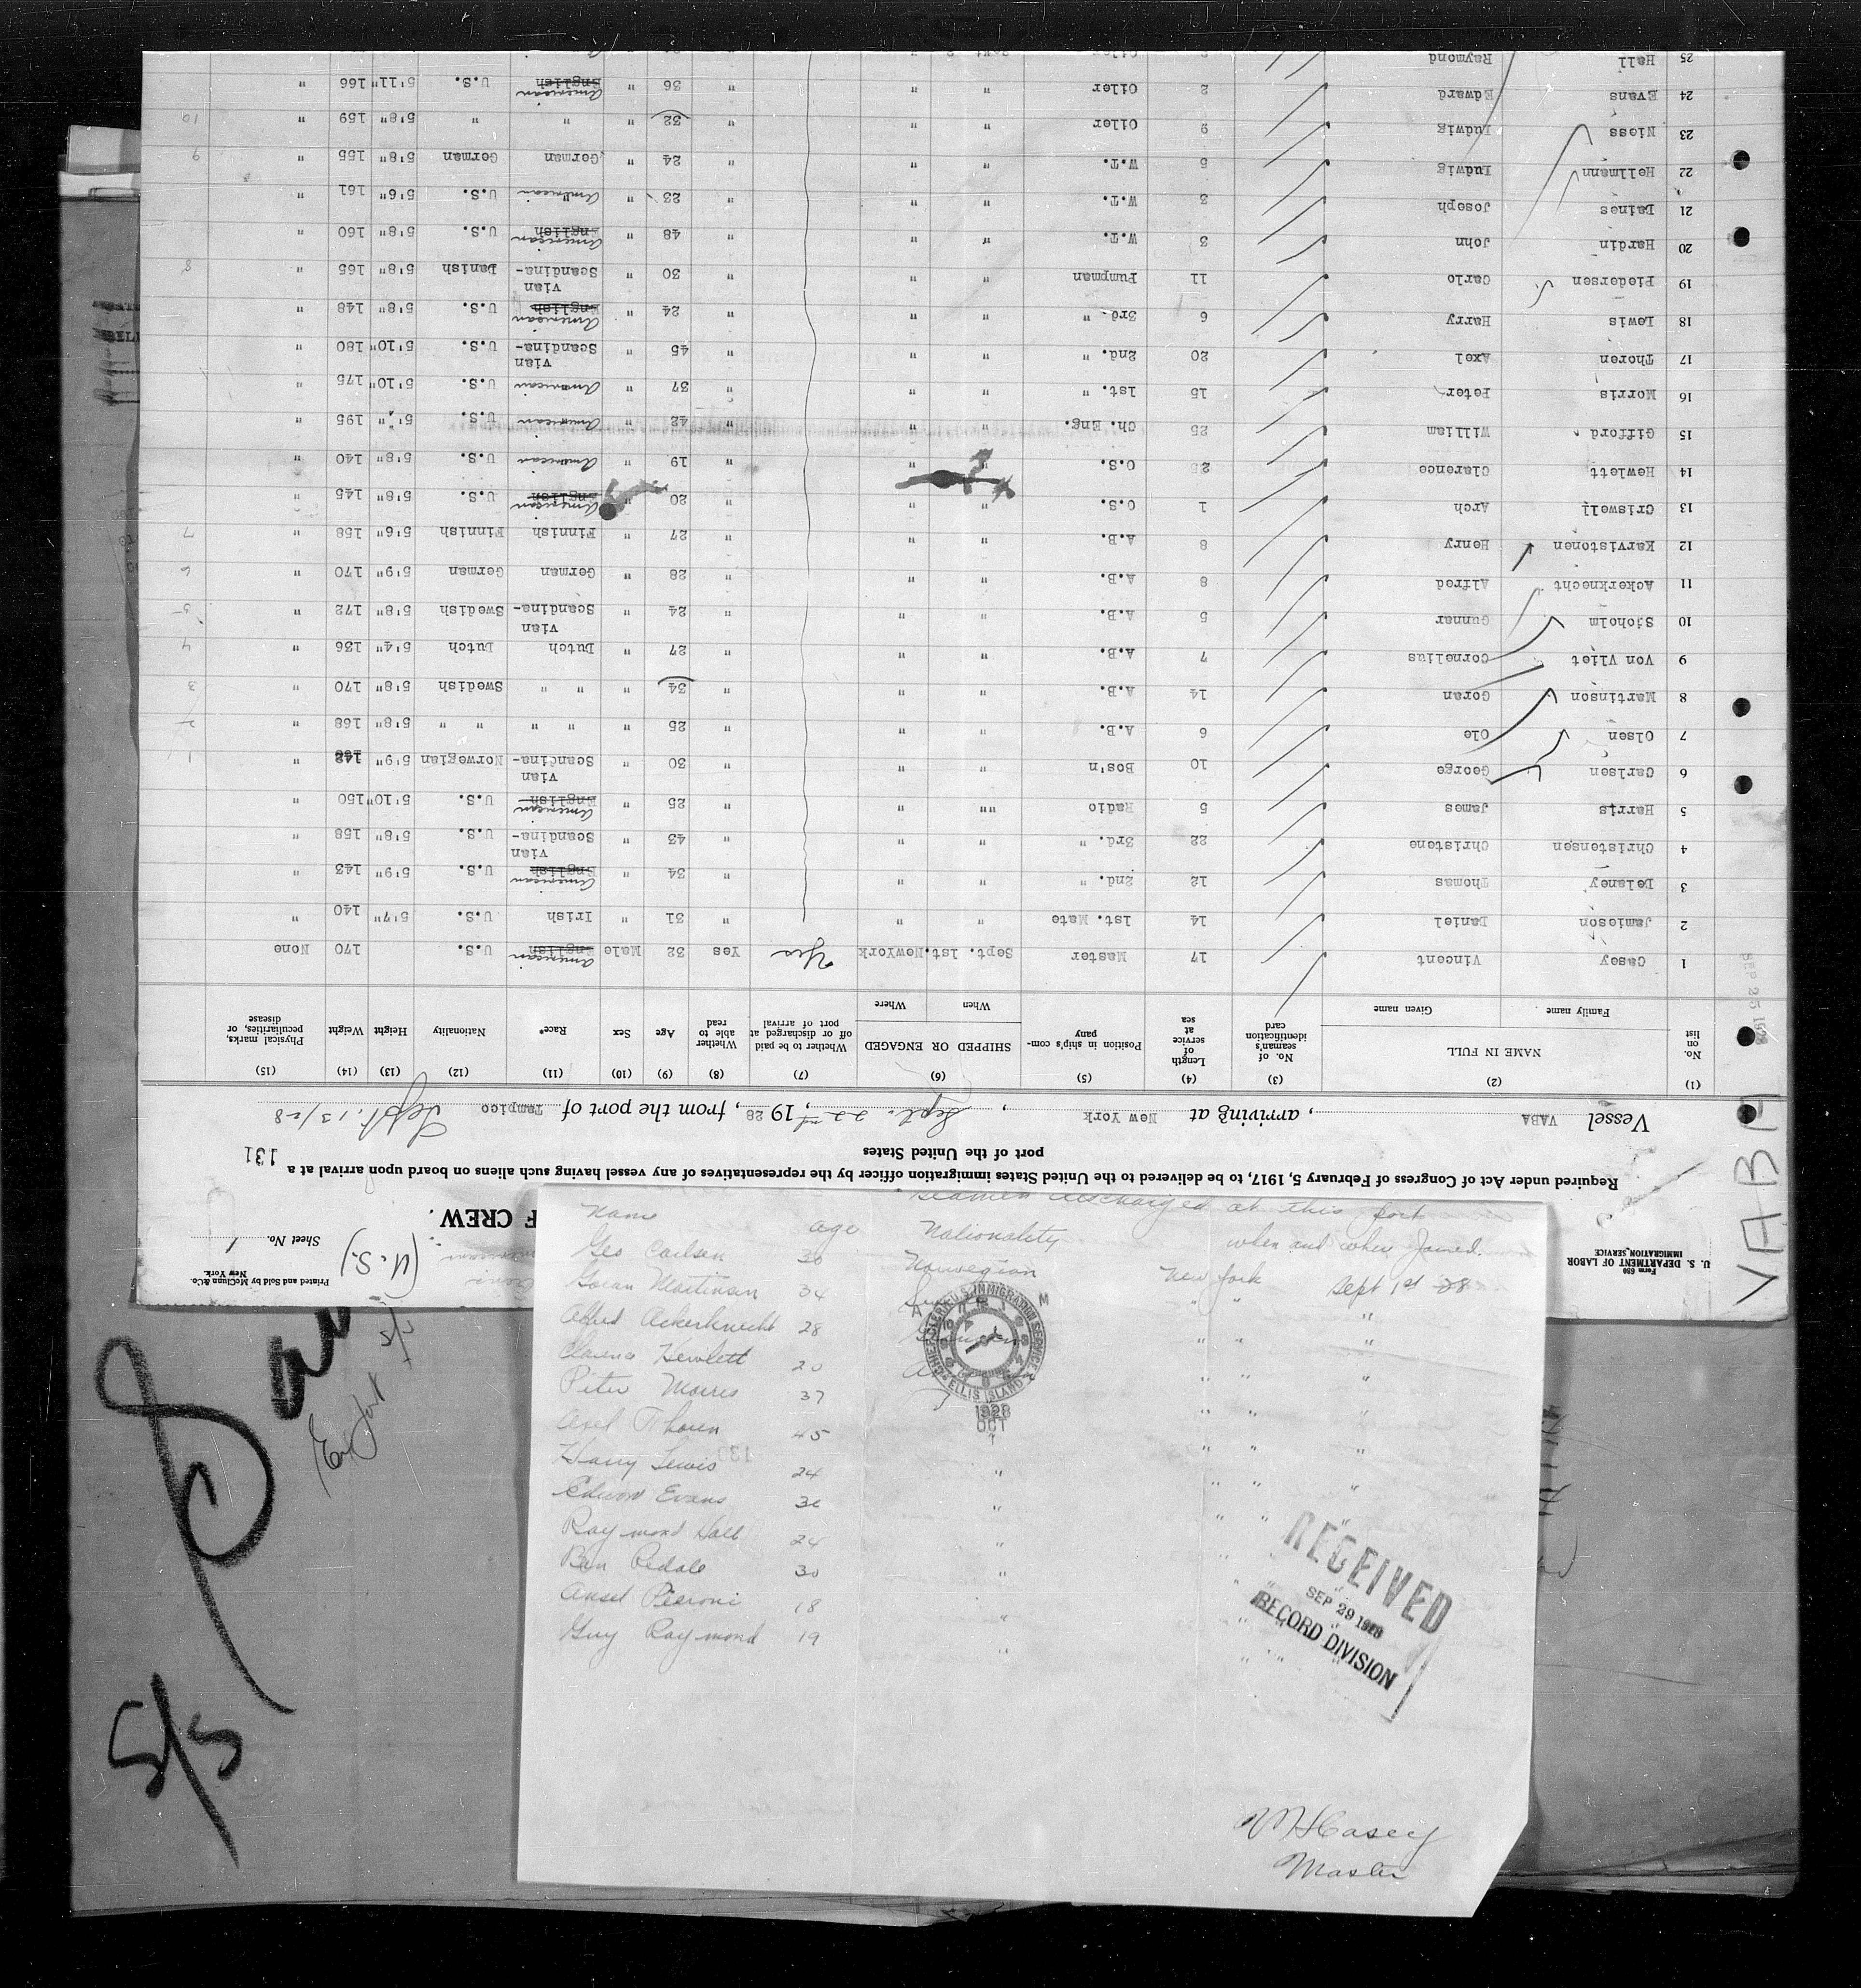 U. S. DEPARTMENT OF LABOR
IMMIGRATION SERVICE
Form 680
Printed and Sold by McClunn & Co.
New York.
(U.S.)
Sheet No. 1
F CREW.
Required under Act of Congress of February 5, 1917, to be delivered to the United States immigration officer by the representatives of any vessel having such aliens on board upon arrival at a
port of the United States
131
Vessel VABA, arriving at New York, Sept. 22nd, 1928, from the port of Tampico Sept. 13/28
(1) (2) (3) (4) (5) (6) (7) (8) (9) (10) (11) (12) (13) (14) (15)
No. on list NAME IN FULL No. of seaman's identification card Length of service at sea Position in ship's company SHIPPED OR ENGAGED Whether to be paid off or discharged at port of arrival Whether able to read Age Sex Race* Nationality Height Weight Physical marks, peculiarities, or disease
Family name Given name When Where
1 Casey Vincent 17 Master Sept. 1st. NewYork Yes Yes 32 Male English American U.S. 170 None
2 Jamieson Daniel 14 1st. Mate " " " 31 " Irish U.S. 5'7" 140 "
3 Delaney Thomas 12 2nd. " " " " 34 " English American U.S. 5'9" 143 "
4 Christensen Christene 22 3rd. " " " " 43 " Scandinavian U.S. 5'8" 158 "
5 Harris James 5 Radio "" " " 25 " English American U.S. 5'10" 150 "
6 Carlsen George 10 Bos'n " " " 30 " Scandinavian Norwegian 5'9" 148 " 1
7 Olsen Ole 6 A.B. " " " 25 " " " " " 5'8" 168 " 2
8 Martinson Goran 14 A.B. " " " 34 " " " Swedish 5'8" 170 " 3
9 Von Vliet Cornelius 7 A.B. " " " 27 " Dutch Dutch 5'4" 136 " 4
10 Sjoholm Gunnar 5 A.B. " " " 24 " Scandinavian Swedish 5'8" 172 " 5
11 Ackerknecht Alfred 8 A.B. " " " 28 " German German 5'9" 170 " 6
12 Karvistonen Henry 8 A.B. " " " 27 " Finnish Finnish 5'6" 158 " 7
13 Criswell Arch 1 O.S. " " " 20 " English American U.S. 5'8" 145 "
14 Hewlett Clarence O.S. " " " 19 " American U.S. 5'8" 140 "
15 Gifford William 25 Ch. Eng. " " " 42 " American U.S. 195 "
16 Morris Peter 15 1st. " " " " 37 " American U.S. 5'10" 175 "
17 Thoren Axel 20 2nd. " " " " 45 " Scandinavian U.S. 5'10" 180 "
18 Lewis Harry 6 3rd. " " " " 24 " English American U.S. 5'8" 148 "
19 Piedersen Carlo 11 Pumpman " " " 30 " Scandinavian Danish 5'8" 165 " 8
20 Hardin John 3 W.T. " " " 48 " English American U.S. 5'8" 160 "
21 Laines Joseph 3 W.T. " " " 23 " American U.S. 5'6" 161 "
22 Hellmann Ludwig 5 W.T. " " " 24 " German German 5'8" 155 " 9
23 Nioss Ludwig 9 Oiler " " " 32 " " " 5'8" 159 " 10
24 Evans Edward 2 Oiler " " " 36 " English American U.S. 5'11" 166 "
25 Hall Raymond
VABA
Seamen discharged at this port
Name age Nationality when and where Joined.
Geo Carlsen 30 Norwegian New York Sept 1st 28
Goran Martinsen 34 " " "
Alfred Ackerknecht 28 German " " "
Clarence Hewlett 20 " " "
Peter Morris 37 " " "
Axel Thoren 45 " " "
Harry Lewis 24 " " " "
Edward Evans 36 " " " "
Raymond Hall 24 "
Ben Redale 30 "
Ansel Pieroni 18 "
Guy Raymond 19 "
CHIEF CLERK U.S. IMMIGRATION SERVICE
ELLIS ISLAND
1928
OCT
1
RECEIVED
SEP 29 1928
RECORD DIVISION
VHCasey
Master
S/S